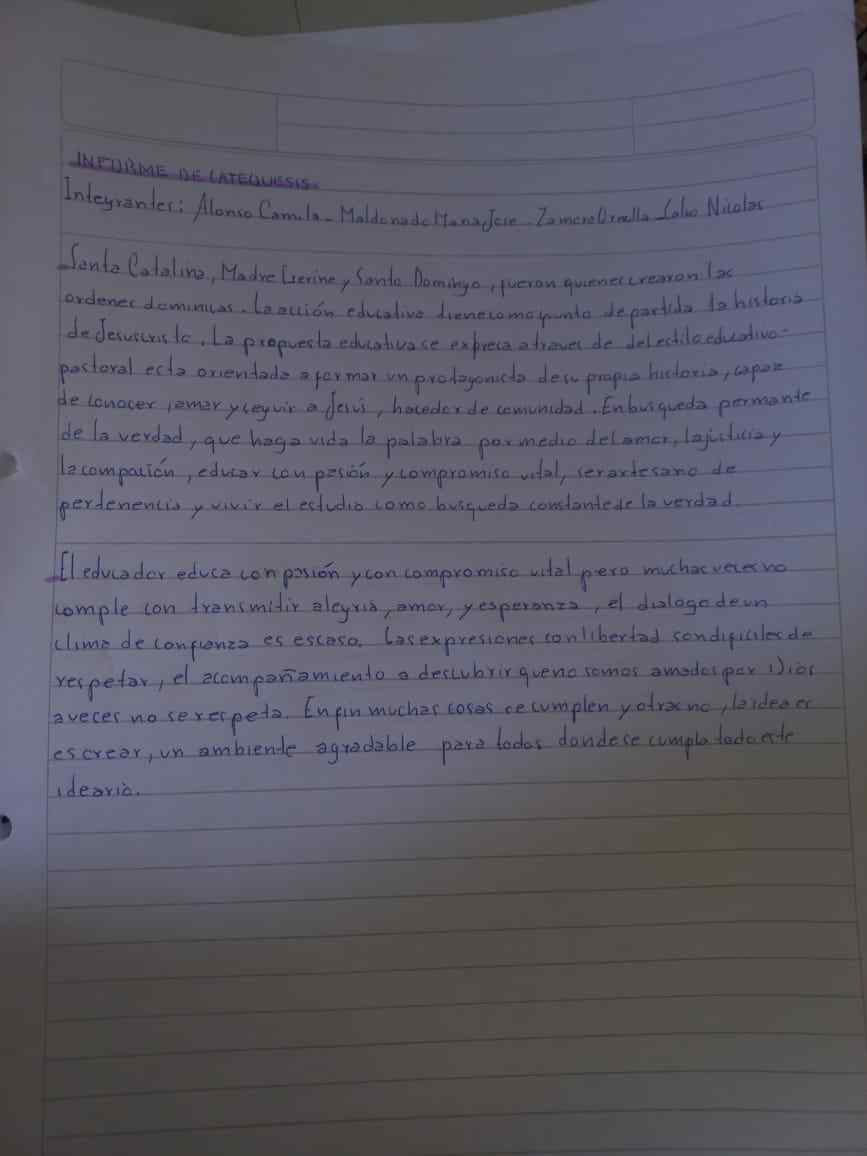 INFORME DE CATEQUESIS.
Integrantes: Alonso Camila - Maldonado Maria Jose - Zamora Ornella - Nicolas
Santa Catalina, Madre y Santo Domingo, fueron quienes crearon las
ordenes dominicas. La acción educativa tiene como punto de partida la historia
de Jesuscristo. La propuesta educativa se expresa a traves de del estilo educativo-
pastoral esta orientada a formar un protagonista de su propia historia, capaz
de conocer, amar y seguir a Jesús, hacedor de comunidad. En busqueda permante
de la verdad, que haga vida la palabra por medio del amor, la justicia y
la compasión, educar con pasión y compromiso vital, ser artesano de
pertenencia y vivir el estudio como busqueda constante de la verdad.
El educador educa con pasión y con compromiso vital pero muchas veces no
comple con transmitir alegria, amor, y esperanza, el dialogo de un
clima de confianza es escaso. Las expresiones con libertad son dificiles de
respetar, el acompañamiento a descubrir que no somos amados por Dios
a veces no se respeta. En fin muchas cosas se cumplen y otras no, la idea es
es crear, un ambiente agradable para todos donde se cumpla todo este
ideario.